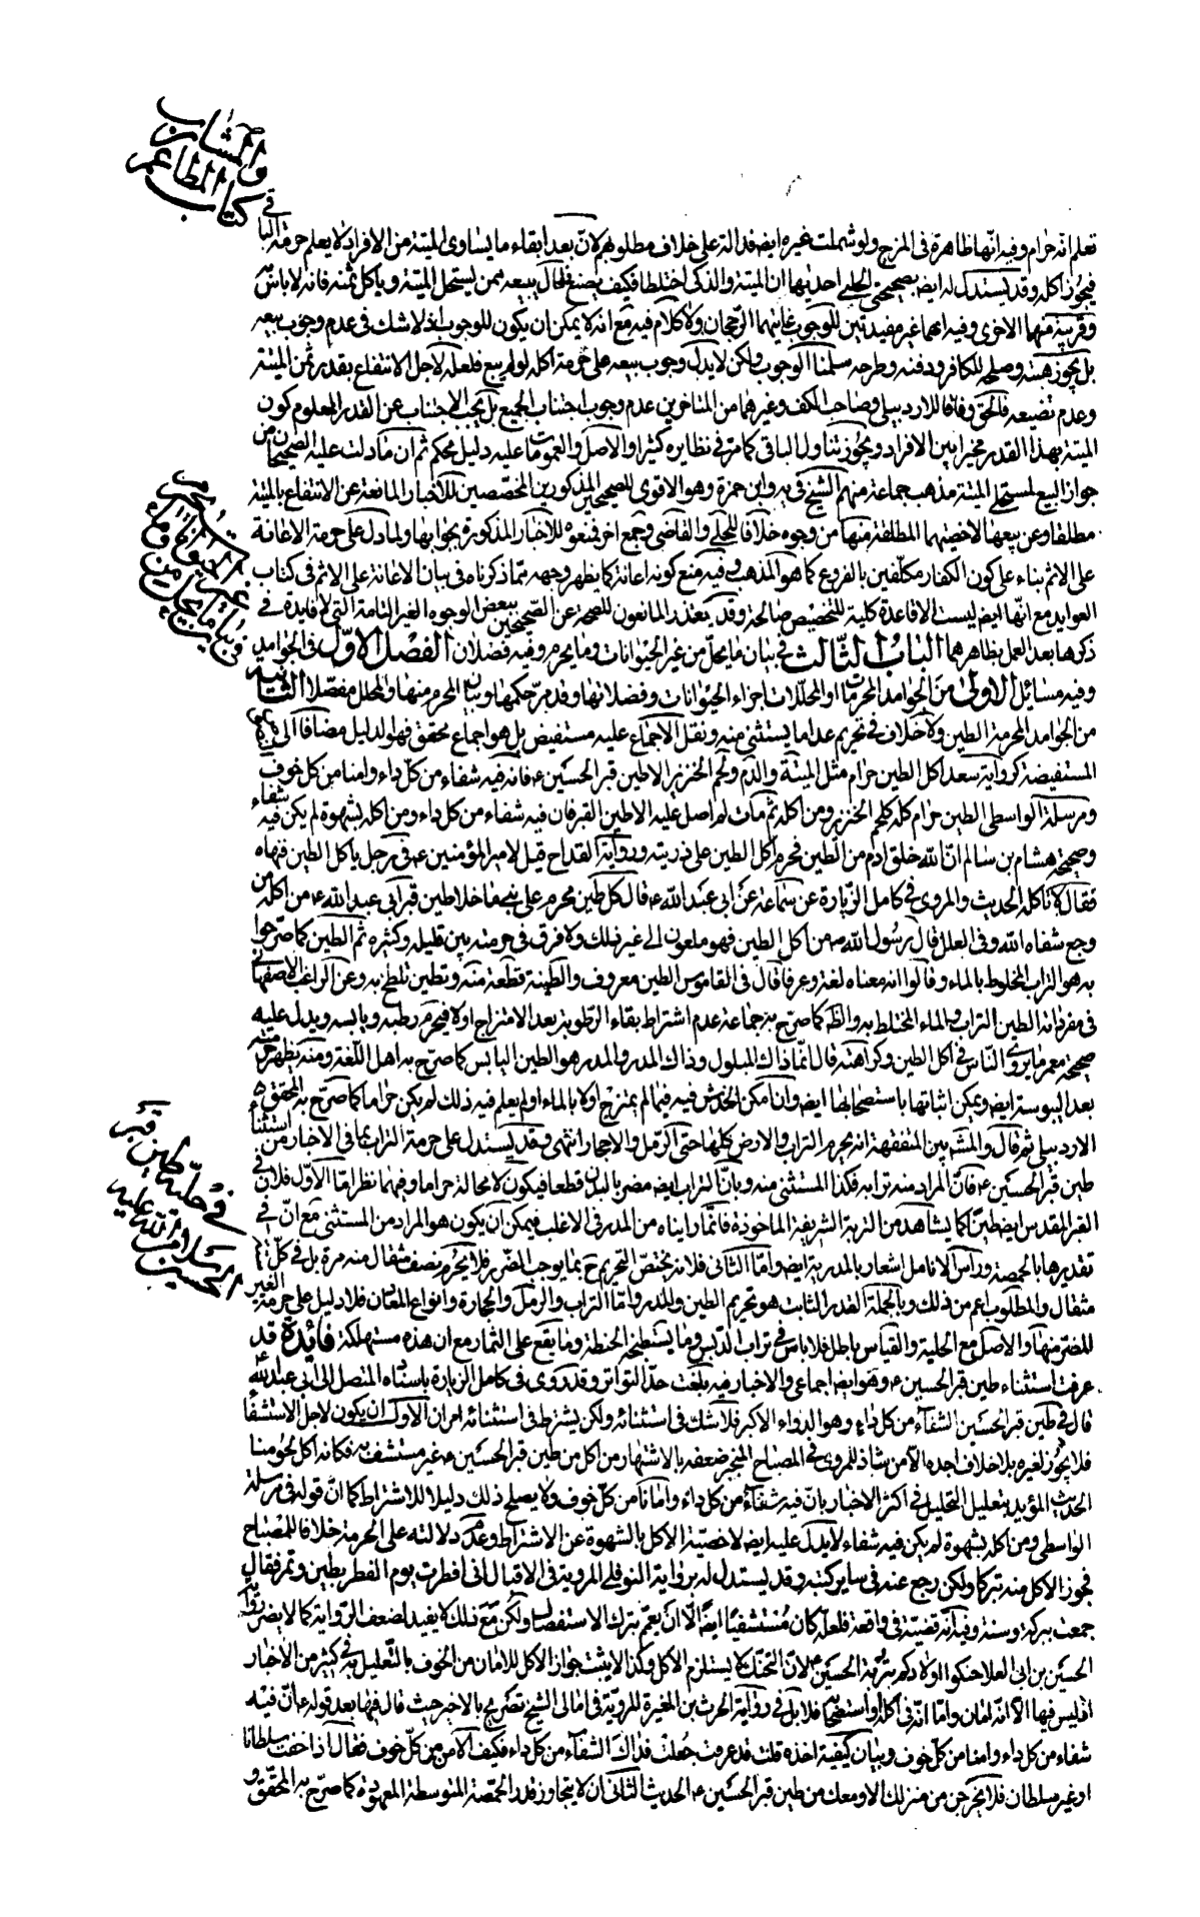 كتاب المطاعم
والمشارب
تعلم انه حرام وفيه انها ظاهرة فى المزج ولو شملت غيره ايضا فدالة على خلاف مطلوبهم لان بعد ابقاء ما يساوى الميتة من الافراد لا يعلم حرمة الباقى
فيجوز اكله وقد يستدل له ايضا بصحيحتى الحلبى احديهما ان الميتة والذكى اختلطا فكيف يصنع فقال يبيعه ممن يستحل الميتة وياكل ثمنه فانه لا باس به
وقريبة منها الاخرى وفيه انهما غير مفيدتين للوجوب غايتهما الرجحان ولا كلام فيه مع انه لا يمكن ان يكون للوجوب اذ لا شك فى عدم وجوب بيعه
بل يجوز هبته وصلحه للكافر ودفنه وطرحه سلمنا الوجوب ولكن لا يدل وجوب بيعه على حرمة اكله لو لم يبع فلعله لاجل الانتفاع بقدر ثمن الميتة
وعدم تضيعه فالحق وفاقا للاردبيلى وصاحب الكف وغيرهما من المتاخرين عدم وجوب اجتناب الجميع بل يجب الاجتناب عن القدر المعلوم كون
الميتة بهذا القدر مخيرا بين الافراد ويجوز تناول الباقى كما مر فى نظايره كثيرا والاصل والعمومات عليه دليل محكم ثم ان ما دلت عليه الصحيحتان من
جواز البيع لمستحلى الميتة مذهب جماعة منهم الشيخ فى يه وابن حمزة وهو الاقوى للصحيحين المذكورين المخصصين للاخبار المانعة عن الانتفاع بالميتة
مطلقا وعن بيعها لاخصيتهما المطلقة منها من وجوه خلافا للحلى والقاضى وجمع اخر فمنعوه للاخبار المذكورة بجوابها ولما دل على حرمة الاعانة
على الاثم بناء على كون الكفار مكلفين بالفروع كما هو المذهب وفيه منع كونه اعانة كما يظهر وجهه مما ذكرناه فى بيان الاعانة على الاثم فى كتاب
العوايد مع انها ايضا ليست الا قاعدة كلية للتخصيص صالحة وقد يعتذر المانعون للصحة عن الصحيحين ببعض الوجوه الغير التامة التى لا فايدة فى
ذكرها بعد العمل بظاهرهما الباب الثالث فى بيان ما يحل من غير الحيوانات وما يحرم وفيه فصلان الفصل الاول فى الجوامد
وفيه مسائل الاولى من الجوامد المحرمات او المحللات اجزاء الحيوانات وفضلاتها وقد مر حكمها وبيان المحرم منها والمحلل مفصلا الثانية
من الجوامد المحرمة الطين ولا خلاف فى تحريم عدا ما يستثنى منه ونقل الاجماع عليه مستفيض بل هو اجماع محقق فهو الدليل مضافا الى
المستفيضة كرواية سعد اكل الطين حرام مثل الميتة والدم ولحم الخنزير الا طين قبر الحسين ع فانه فيه شفاء من كل داء وامنا من كل خوف
ومرسلة الواسطى الطين حرام كله كلحم الخنزير ومن اكله ثم مات لم اصل عليه الا طين القبر فان فيه شفاء من كل داء ومن اكله بشهوة لم يكن فيه شفاء
وصحيحة هشام بن سالم ان الله خلق ادم من الطين فحرم اكل الطين على ذريته ورواية القداح قيل لامير المؤمنين ع فى رجل ياكل الطين فنهاه
فقال لا تاكله الحديث والمروى فى كامل الزيارة عن سماعة عن ابى عبد الله ع قال كل طين محرم على بنى ادم ما خلا طين قبر ابى عبد الله ع من اكله من
وجع شفاه الله وفى العلل قال رسول الله ص من اكل الطين فهو ملعون الى غير ذلك ولا فرق فى حرمته بين قليله وكثيره ثم الطين كما صرحوا
به هو التراب المخلوط بالماء وقالوا انه معناه لغة وعرفا قال فى القاموس الطين معروف والطينة قطعة منه وتطين تلطخ به وعن الراغب الاصفهانى
فى مفرداته الطين التراب والماء المختلط به والظ كما صرح به جماعة عدم اشتراط بقاء الرطوبة بعد الامتزاج اولا فيحرم رطبه ويابسه ويدل عليه
صحيحة معمر ما يروى الناس فى اكل الطين وكراهته قال انما ذاك المبلول وذاك المدر والمدر هو الطين اليابس كما صرح به اهل اللغة ومنه يظهر حرمته
بعد اليبوسة ايضا ويمكن اثباتها باستصحابها ايضا وان امكن الخدش فيه فيما لم يمتزج اولا بالماء او لم يعلم فيه ذلك لم يكن حراما كما صرح به المحقق
الاردبيلى ثم قال والمشهور بين المتفقهة انه يحرم التراب والارض كلها حتى الرمل والاحجار انتهى وقد يستدل على حرمة التراب بما فى الاخبار من استثناء
طين قبر الحسين ع فان المراد منه ترابه فكذا المستثنى منه وبان التراب ايضا مضر بالبدن قطعا فيكون لا محالة حراما وفيهما نظر اما الاول فلان فى
القبر المقدس ايضا طينا كما يشاهد من التربة الشريفة الماخوذة فانما رايناه من المدر فى الاغلب فيمكن ان يكون هو المراد من المستثنى مع ان فى
تقديرها بالحمصة وراس الانامل اشعار بالمدرية ايضا واما الثانى فلانه يختص التحريم ح بما يوجب الضرر فلا يحرم نصف مثقال منه مرة بل فى كل
مثقال والمطلوب اعم من ذلك وبالجملة القدر الثابت هو تحريم الطين والمدر واما التراب والرمل والحجارة وانواع المعادن فلا دليل على حرمة الغير
المضر منها والاصل مع الحلية والقياس باطل فلا باس فى تراب الدبس وما يستطحبه الحنطة وما يقع على الثمار مع ان هذه مستهلكة فائدة قد
عرفت استثناء طين قبر الحسين ع وهو ايضا اجماعى والاخبار فيه بلغت حد التواتر وقد روى فى كامل الزيارة باسناده المتصل الى ابى عبد الله
قال فى طين قبر الحسين الشفاء من كل داء وهو الدواء الاكبر فلا شك فى استثنائه ولكن يشترط فى استثنائه امران الاول ان يكون لاجل الاستشفاء
فلا يجوز لغيره بلا خلاف اجده الا من شاذ للمروى فى المصباح المنجبر ضعفه بالاشتهار من اكل من طين قبر الحسين ع غير مستشف به فكانما اكل لحومنا
الحديث المؤيد بتعليل التحليل فى اكثر الاخبار بان فيه شفاء من كل داء وامانا من كل خوف ولا يصلح ذلك دليلا للاشتراط كما ان قوله فى مرسلة
الواسطى ومن اكله بشهوة لم يكن فيه شفاء لا يدل عليه ايضا لاخصية الاكل بالشهوة عن الاشتراط وعدم دلالته على الحرمة خلافا للمصباح
فجوز الاكل منه تبركا ولكن رجع عنه فى ساير كتبه وقد يستدل له برواية النوفلى المروية فى الاقبال انى افطرت يوم الفطر بطين وتمر فقال
جمعت بركة وسنة وفيه انه قضية فى واقعة فلعله كان مستشفيا ايضا الا ان يعم بترك الاستفصال ولكن مع ذلك لا يفيد لضعف الرواية كما لا يضر رواية
الحسين بن ابى العلا حنكوا اولادكم بتربة الحسين ع لان التحنك لا يستلزم الاكل وكذا لا يثبت جواز الاكل للامان من الخوف بالتعليل به فى كثير من الاخبار
اذ ليس فيها الا انه امان واما انه فى اكله او استصحابه فلا بل فى رواية الحرث بن المغيرة المروية فى امالى الشيخ تصريح بالاخير حيث قال فيها بعد قوله ع ان فيه
شفاء من كل داء وامنا من كل خوف وبيان كيفية اخذه قلت قد عرفت جعلت فداك الشفاء من كل داء فكيف الامن من كل خوف فقال اذا خفت سلطانا
او غير سلطان فلا تخرجن من منزلك الا ومعك من طين قبر الحسين ع الحديث الثانى ان لا يتجاوز قدر الحمصة المتوسطة المعهودة كما صرح به المحقق و
فى بيان ما يحل من
غير الحيوانات وما
يحرم
فى حلية طين قبر
الحسين سلام الله عليه